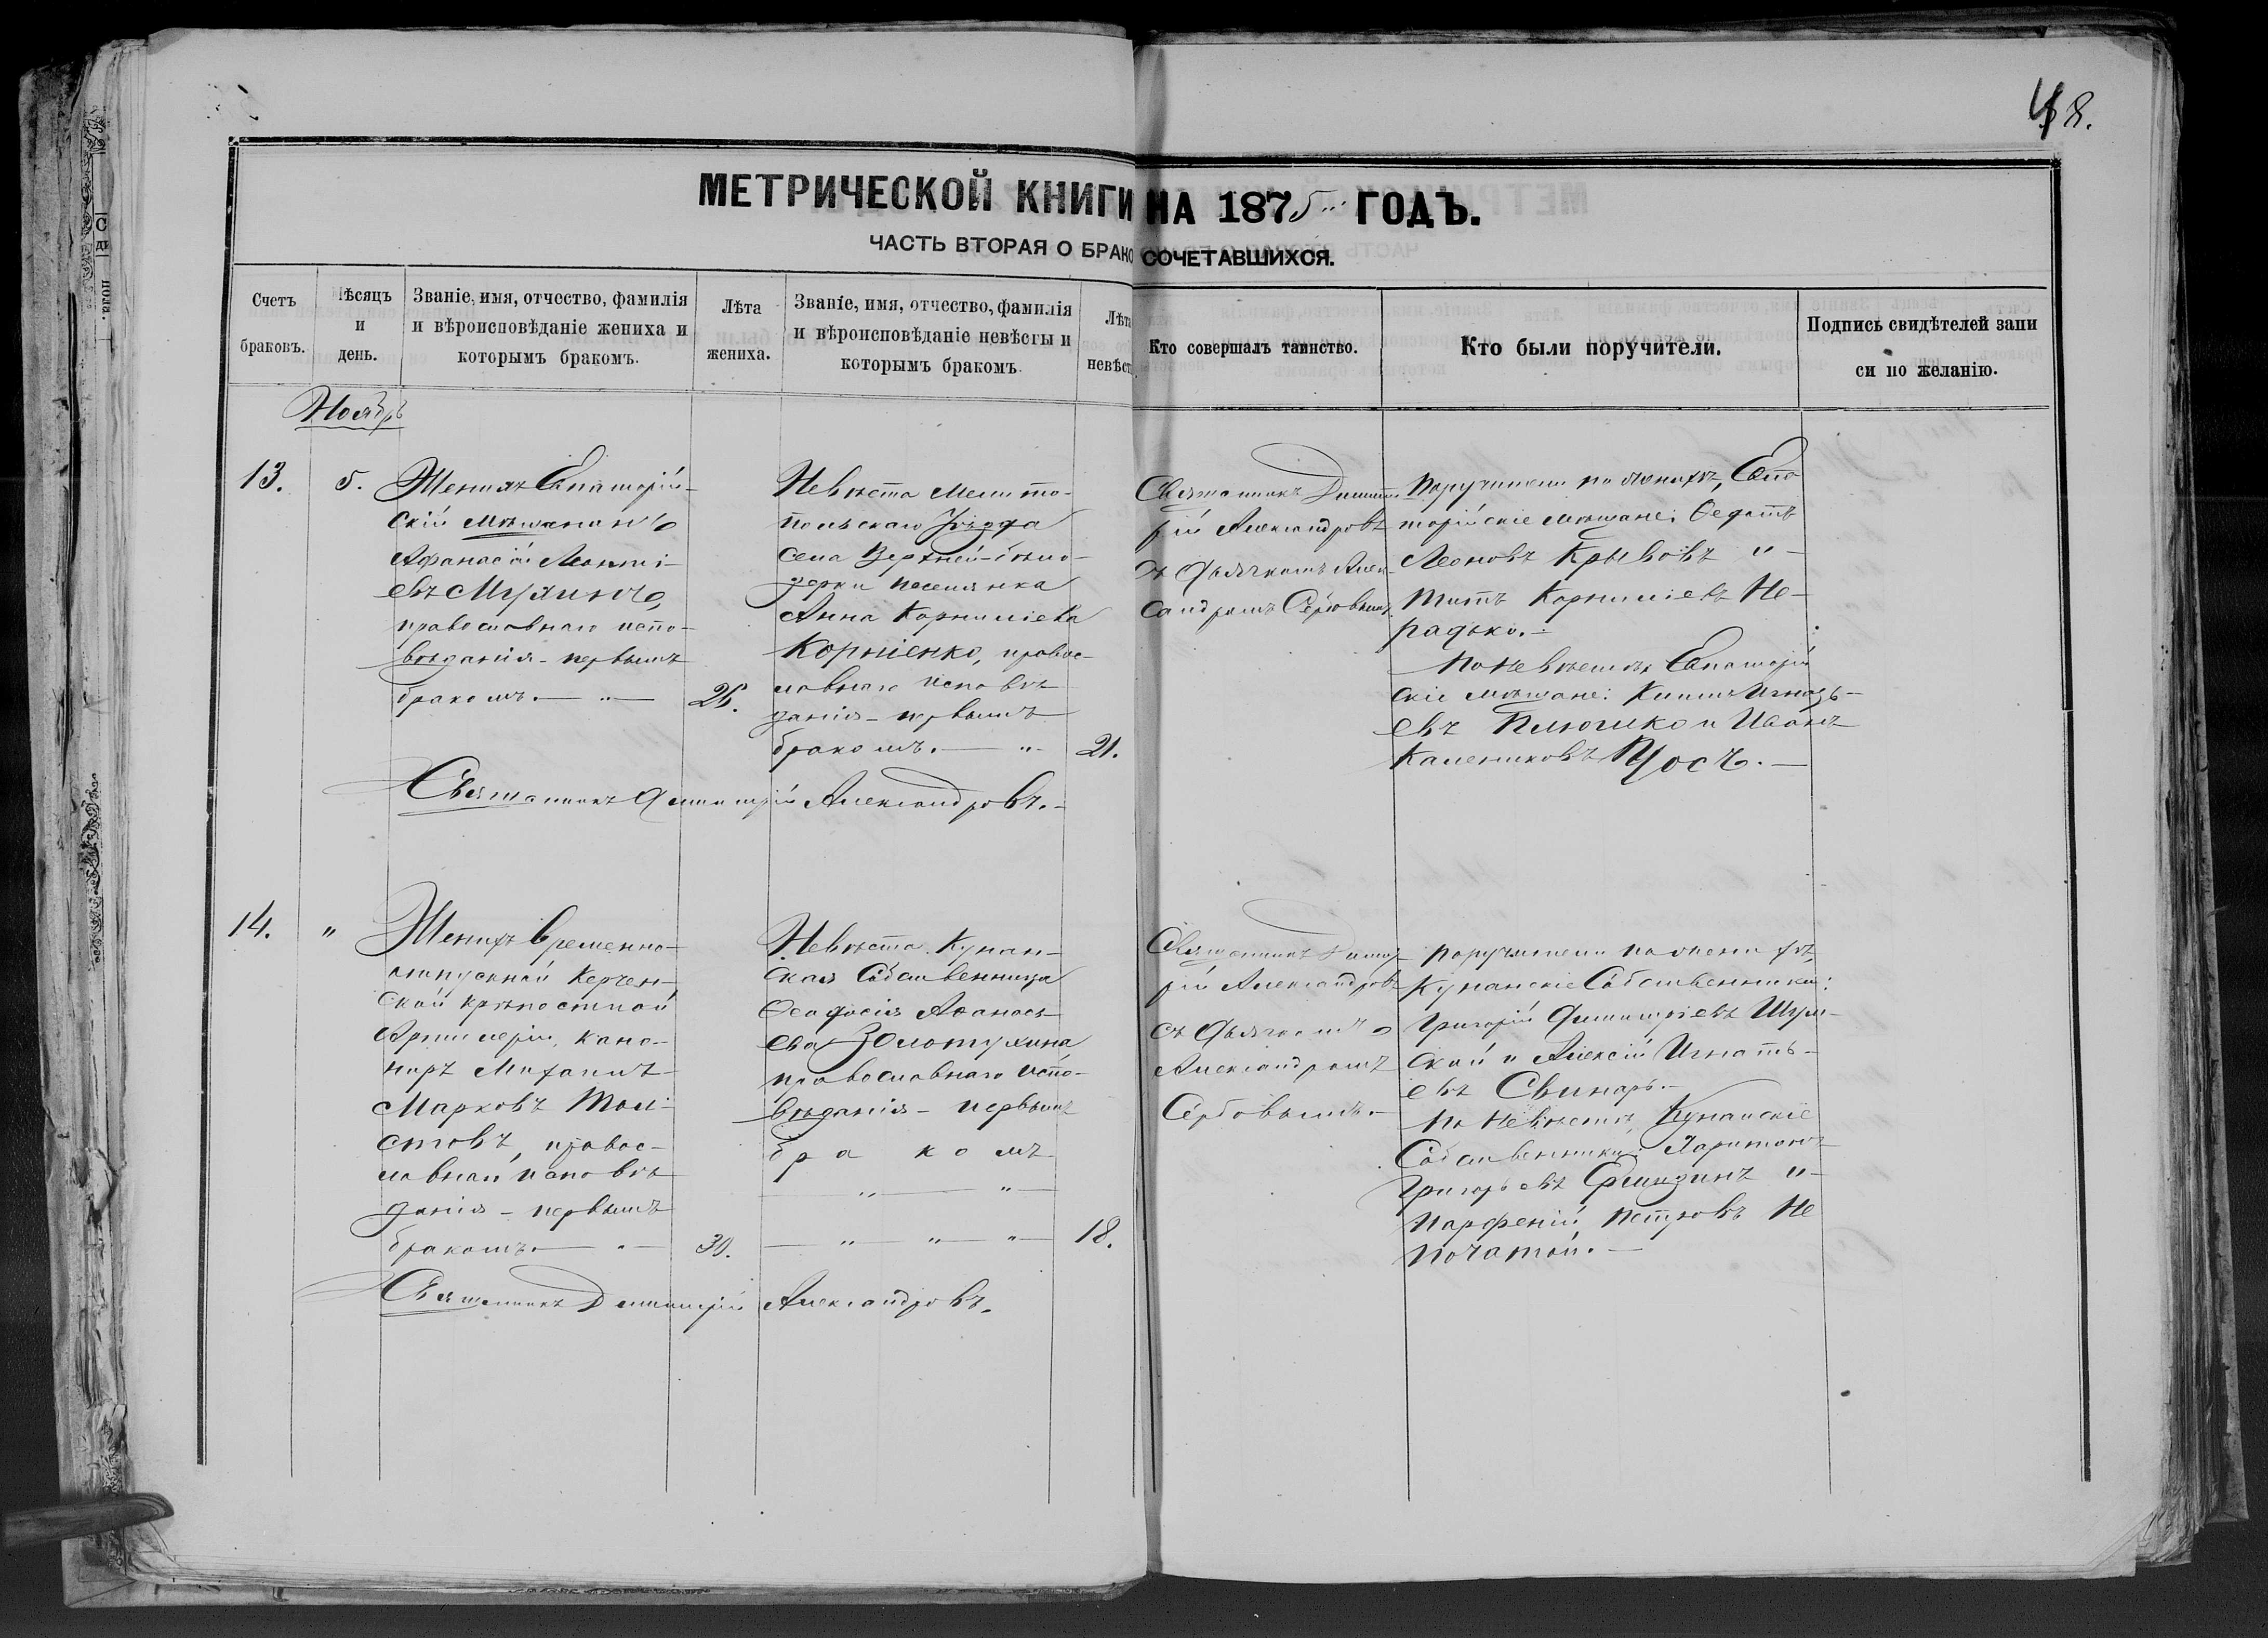 48.
МЕТРИЧЕСКОЙ КНИГИ НА 1875 ГОДЪ.
ЧАСТЬ ВТОРАЯ О БРАКОСОЧЕТАВШИХСЯ.
Счетъ браковъ.
Мѣсяцъ и день.
Званіе, имя, отчество, фамилія
и вѣроисповѣданіе жениха и
которымъ бракомъ.
Лѣта жениха.
Званіе, имя, отчество, фамилія
и вѣроисповѣданіе невѣсты и
которымъ бракомъ.
Лѣта
невѣст
Кто совершалъ таинство.
Кто были поручители.
Подпись свидѣтелей запи
си по желанію.
Ноябрь
13.
5.
Женихъ Евпаторій-
скій мѣщанинъ
Афанасій Леонті-
евъ
православнаго испо-
вѣданія - первымъ
бракомъ. — " —
26.
Невѣста Мелито-
польскаго Уѣзда
села Верхней-Бѣло-
зерки поселянка
Анна Корниліева
Корніенко, правос-
лавнаго исповѣ-
данія - первымъ
бракомъ. — "
21.
Священникъ Димит-
рій Александровъ
съ дьячкомъ Алек-
сандромъ Сербовымъ.
Поручители по женихѣ, Евпа-
торійскіе мѣщане: Федотъ
Леоновъ Крывовъ и
Титъ Корниліевъ Не-
радько.
По невѣстѣ Евпаторій
скіе мѣщане:
евъ и Иванъ
Калениковъ
Священникъ Димитрій Александровъ.
14.
"
Женихъ временно-
отпускной Керчен-
ской крѣпостной
Артилеріи, кано-
ниръ Михаилъ
Марковъ Тол-
стовъ, правос-
лавнаго исповѣ
данія - первымъ
бракомъ. — " —
30.
Невѣста Кунан-
ская Собственница
Феодосія Афанась-
ева Золотухина
православнаго испо-
вѣданія - первымъ
бракомъ
— " — " —
— " — " — " —
18.
Священникъ Димит-
рій Александровъ
съ дьячкомъ
Александромъ
Сербовымъ.
Поручители по женихѣ
Кунанскіе Собственники:
Григорій Димитріевъ Шум-
ской и Алексій Игнать-
евъ Свинарь.
По невѣстѣ, Кунанскіе
Собственники: Харитонъ
Григорьевъ и
Парфеній Петровъ Не
початой. —
Священникъ Димитрій Александровъ.